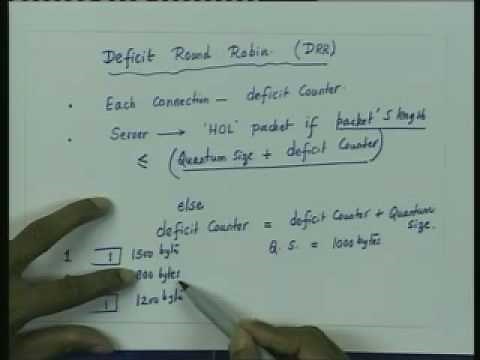 Deficit Round Robin. (DRR)
• Each Connection — deficit Counter.
• Server → 'HOL' packet if packet's length
≤ (Quantum Size + deficit Counter)
else
deficit Counter = deficit Counter + Quantum size.
Q. S. = 1000 bytes
1 1 1500 byte
800 bytes
1 1200 byte